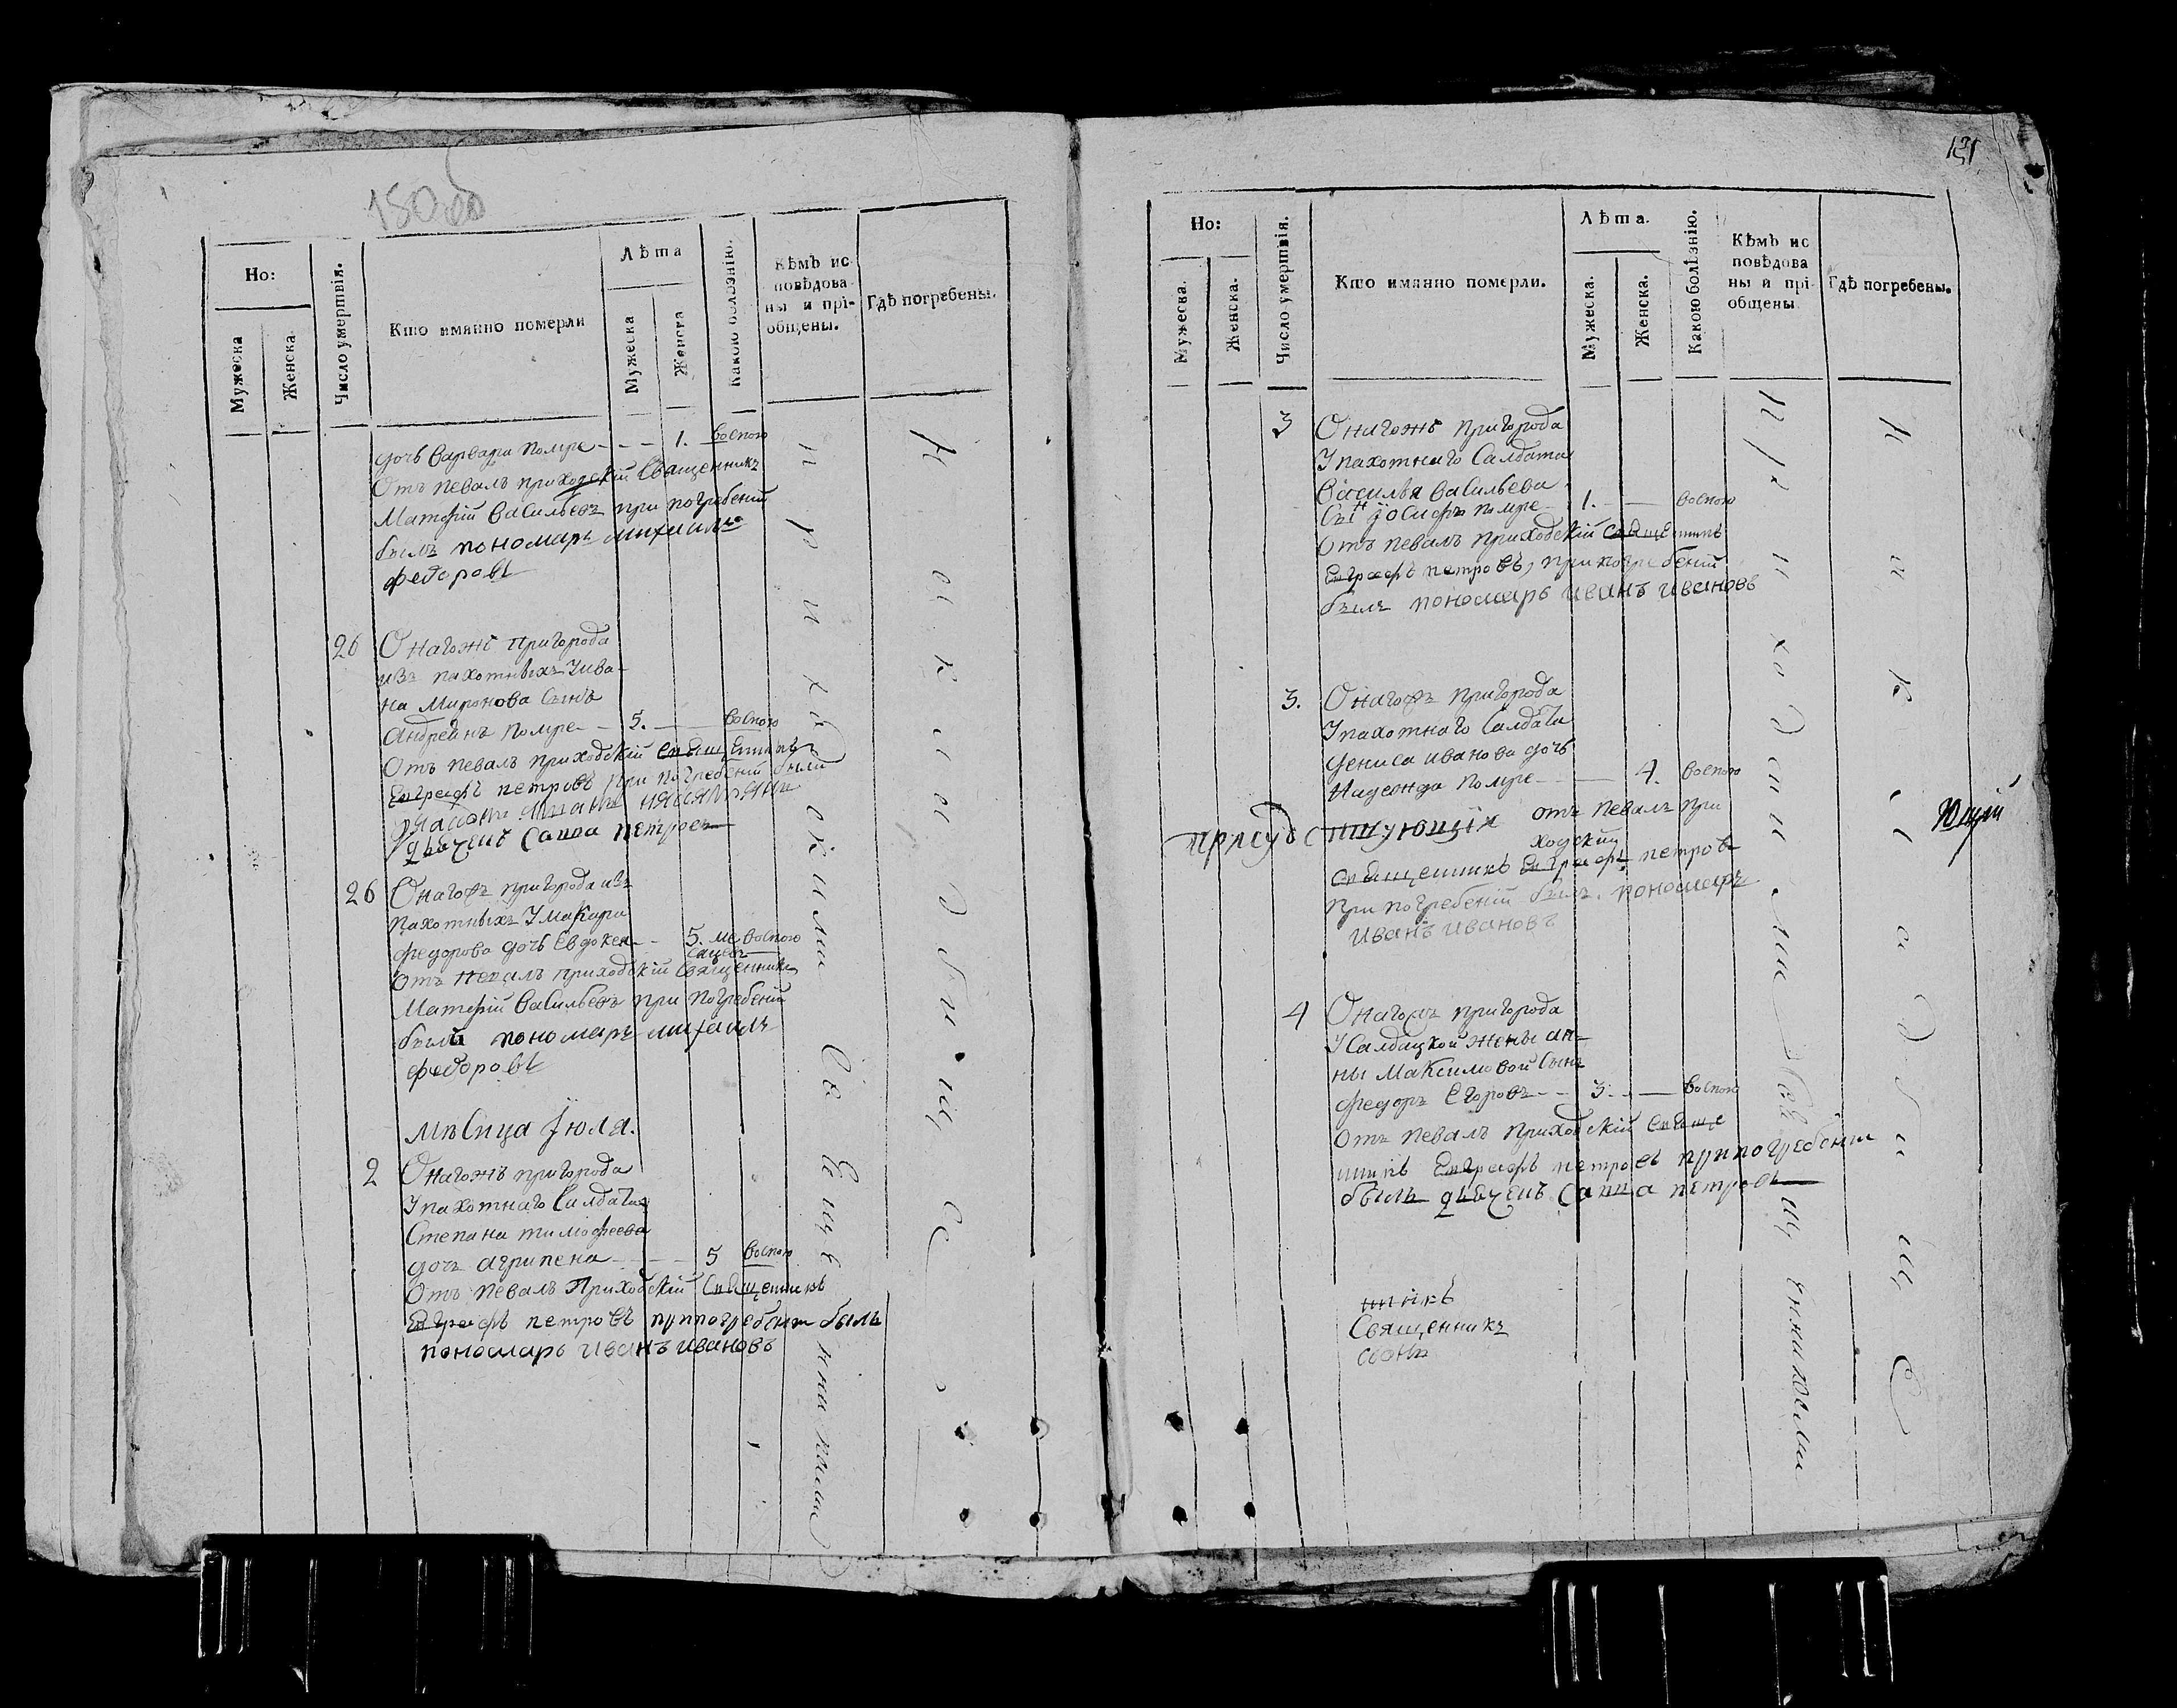 150об
Но:
Мужеска
Женска
Число умертвія.
Кто имянно померли
Лѣта
Мужеска
Женска
Какою болѣзнію.
Кѣмъ ис
повѣдова
ны и прі-
общены.
Гдѣ погребены.
дочь варвара помре - - - 1. воспою
Отъ певалъ приходскій Священникъ
Матфій васильевъ при погребеніи
былъ пономарь михаилъ
федоровъ
26 Онагожъ пригорода
изъ пахотныхъ Уива-
на Миронова Сынъ
Андреинъ помре - 5. воспою
Отъ певалъ приходскій священникъ
Евграфъ петровъ при погребеніи были
дьячекъ Савва петровъ
26 Онагожъ пригорода изъ
пахотныхъ Умакара
федорова дочь Евдокея - 5. ме воспою
сяцевъ
Отъ певалъ приходскій Священникъ
Матфій васильевъ при погребеніи
былъ пономарь михаилъ
федоровъ
мѣсяца Іюля.
2 Онагожъ пригорода
Упахотнаго Салдата
Степана тимофеева
дочь агрипена - - - 5 воспою
Отъ певалъ Приходскій Священникъ
Евграфъ петровъ припогребении былъ
пономарь иванъ ивановъ
приходскими
На кладбище
131
Но:
Мужеска.
Женска.
Число умертвія.
Кто имянно померли.
Лѣта.
Мужеска.
Женска.
Какою болѣзнію.
Кѣмъ ис
повѣдова
ны и прі
общены
Гдѣ погребены.
3 Онагожъ пригорода
Упахотнаго Салдата
василья васильева
Сынъ Іосифъ помре - 1. воспою
Отъ певалъ приходскій священникъ
Евграфъ петровъ, при погребеніи
былъ пономарь иванъ ивановъ
3. Онагожъ пригорода
Упахотнаго Салдата
дениса иванова дочь
помре - - 4. воспою
присудствующія отъ певалъ при
ходскій
священникъ Евграфъ петровъ
при погребеніи былъ пономарь
иванъ ивановъ
ющій
4 Онагожъ пригорода
Усалдацкой жены ан-
ны Максимовой Сынъ
федоръ Егоровъ - - 3. воспою
Отъ певалъ приходскій свяще
нникъ Евграфъ петровъ припогребении
былъ дьячекъ Савва петровъ
нникъ
Священникъ
приходскими
На кладбище